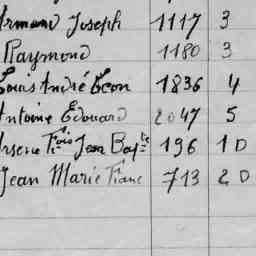 Armand Joseph 1117 3
Raymond 1180 3
Louis André Léon 1836 4
Antoine Edouard 2047 5
Arsene Fçois Jean Bapte 196 1D
Jean Marie Franc 713 2D